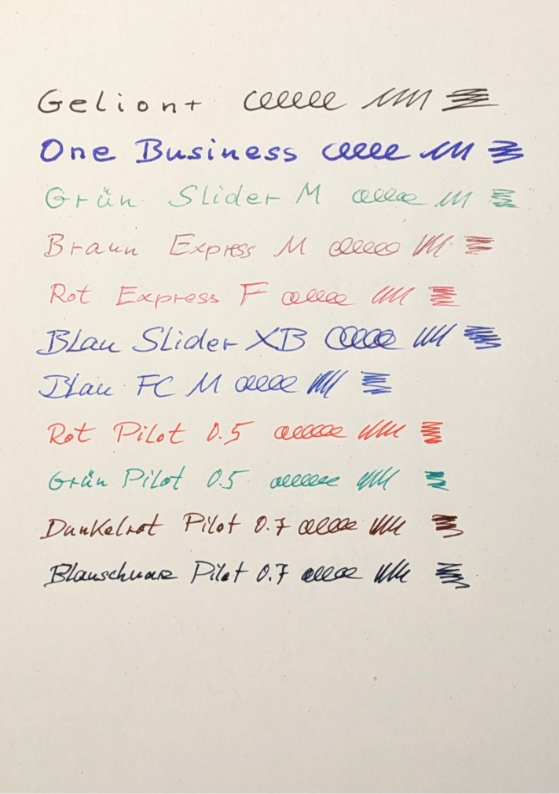 Gelion+
One Business
Grün Slider M
Braun Express M
Rot Express F
Blau Slider XB
Blau FC M
Rot Pilot 0.5
Grün Pilot 0.5
Dunkelrot Pilot 0.7
Blauschwarz Pilot 0.7